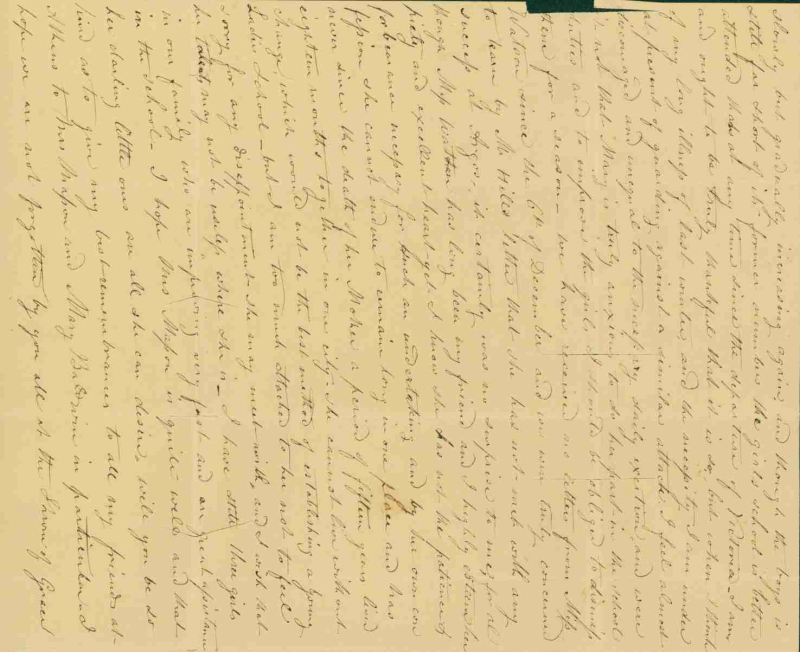 slowly but gradually increasing again, and though the boys is
still far short of its former number the girls school is better
attended than at any time since the departure of Victoria - I am
and ought to be truly thankful that it is so, but when I think
of my long illness of last winter, and the necessity I am under
at present of guarding against a similar attack, I feel almost
discouraged and unequal to the necessary daily exertion and were
it not that Mary is truly anxious to do her part in the school
duties and to improve the girls I should be obliged to dismiss
them for a season - we have received no letters from Miss
Watson since the 6th of December and we were truly concerned
to learn by Mr Hills letter that she has not met with any
success at Argos, it certainly was no surprise to me, for al
though Miss Watson has long been my friend and I highly esteem her
piety and excellent heart yet I know she has not the patience &
forbearance necessary for such an undertaking and by her own con
fession she cannot endure to remain long in one place and has
never since the death of her Mother a period of fifteen years lived
eighteen months together in one city - she cannot live without
change, which would not be the best method of establishing a young
Ladies School - but I am too much attached to her not to feel
sorry for any disappointment she may meet with, and I wish that
her talents may not be useless where she is - I have still three girls
in our family who are improving very fast and are great assistance
in the School - I hope Mrs Mason is quite well and that
her darling little ones are all she can desire, will you be so
kind as to give my best remembrances to all my friends at
Athens to Mrs Mason and Mary Baldwin in particular - I
hope we are not forgotten by you all at the Throne of Grace